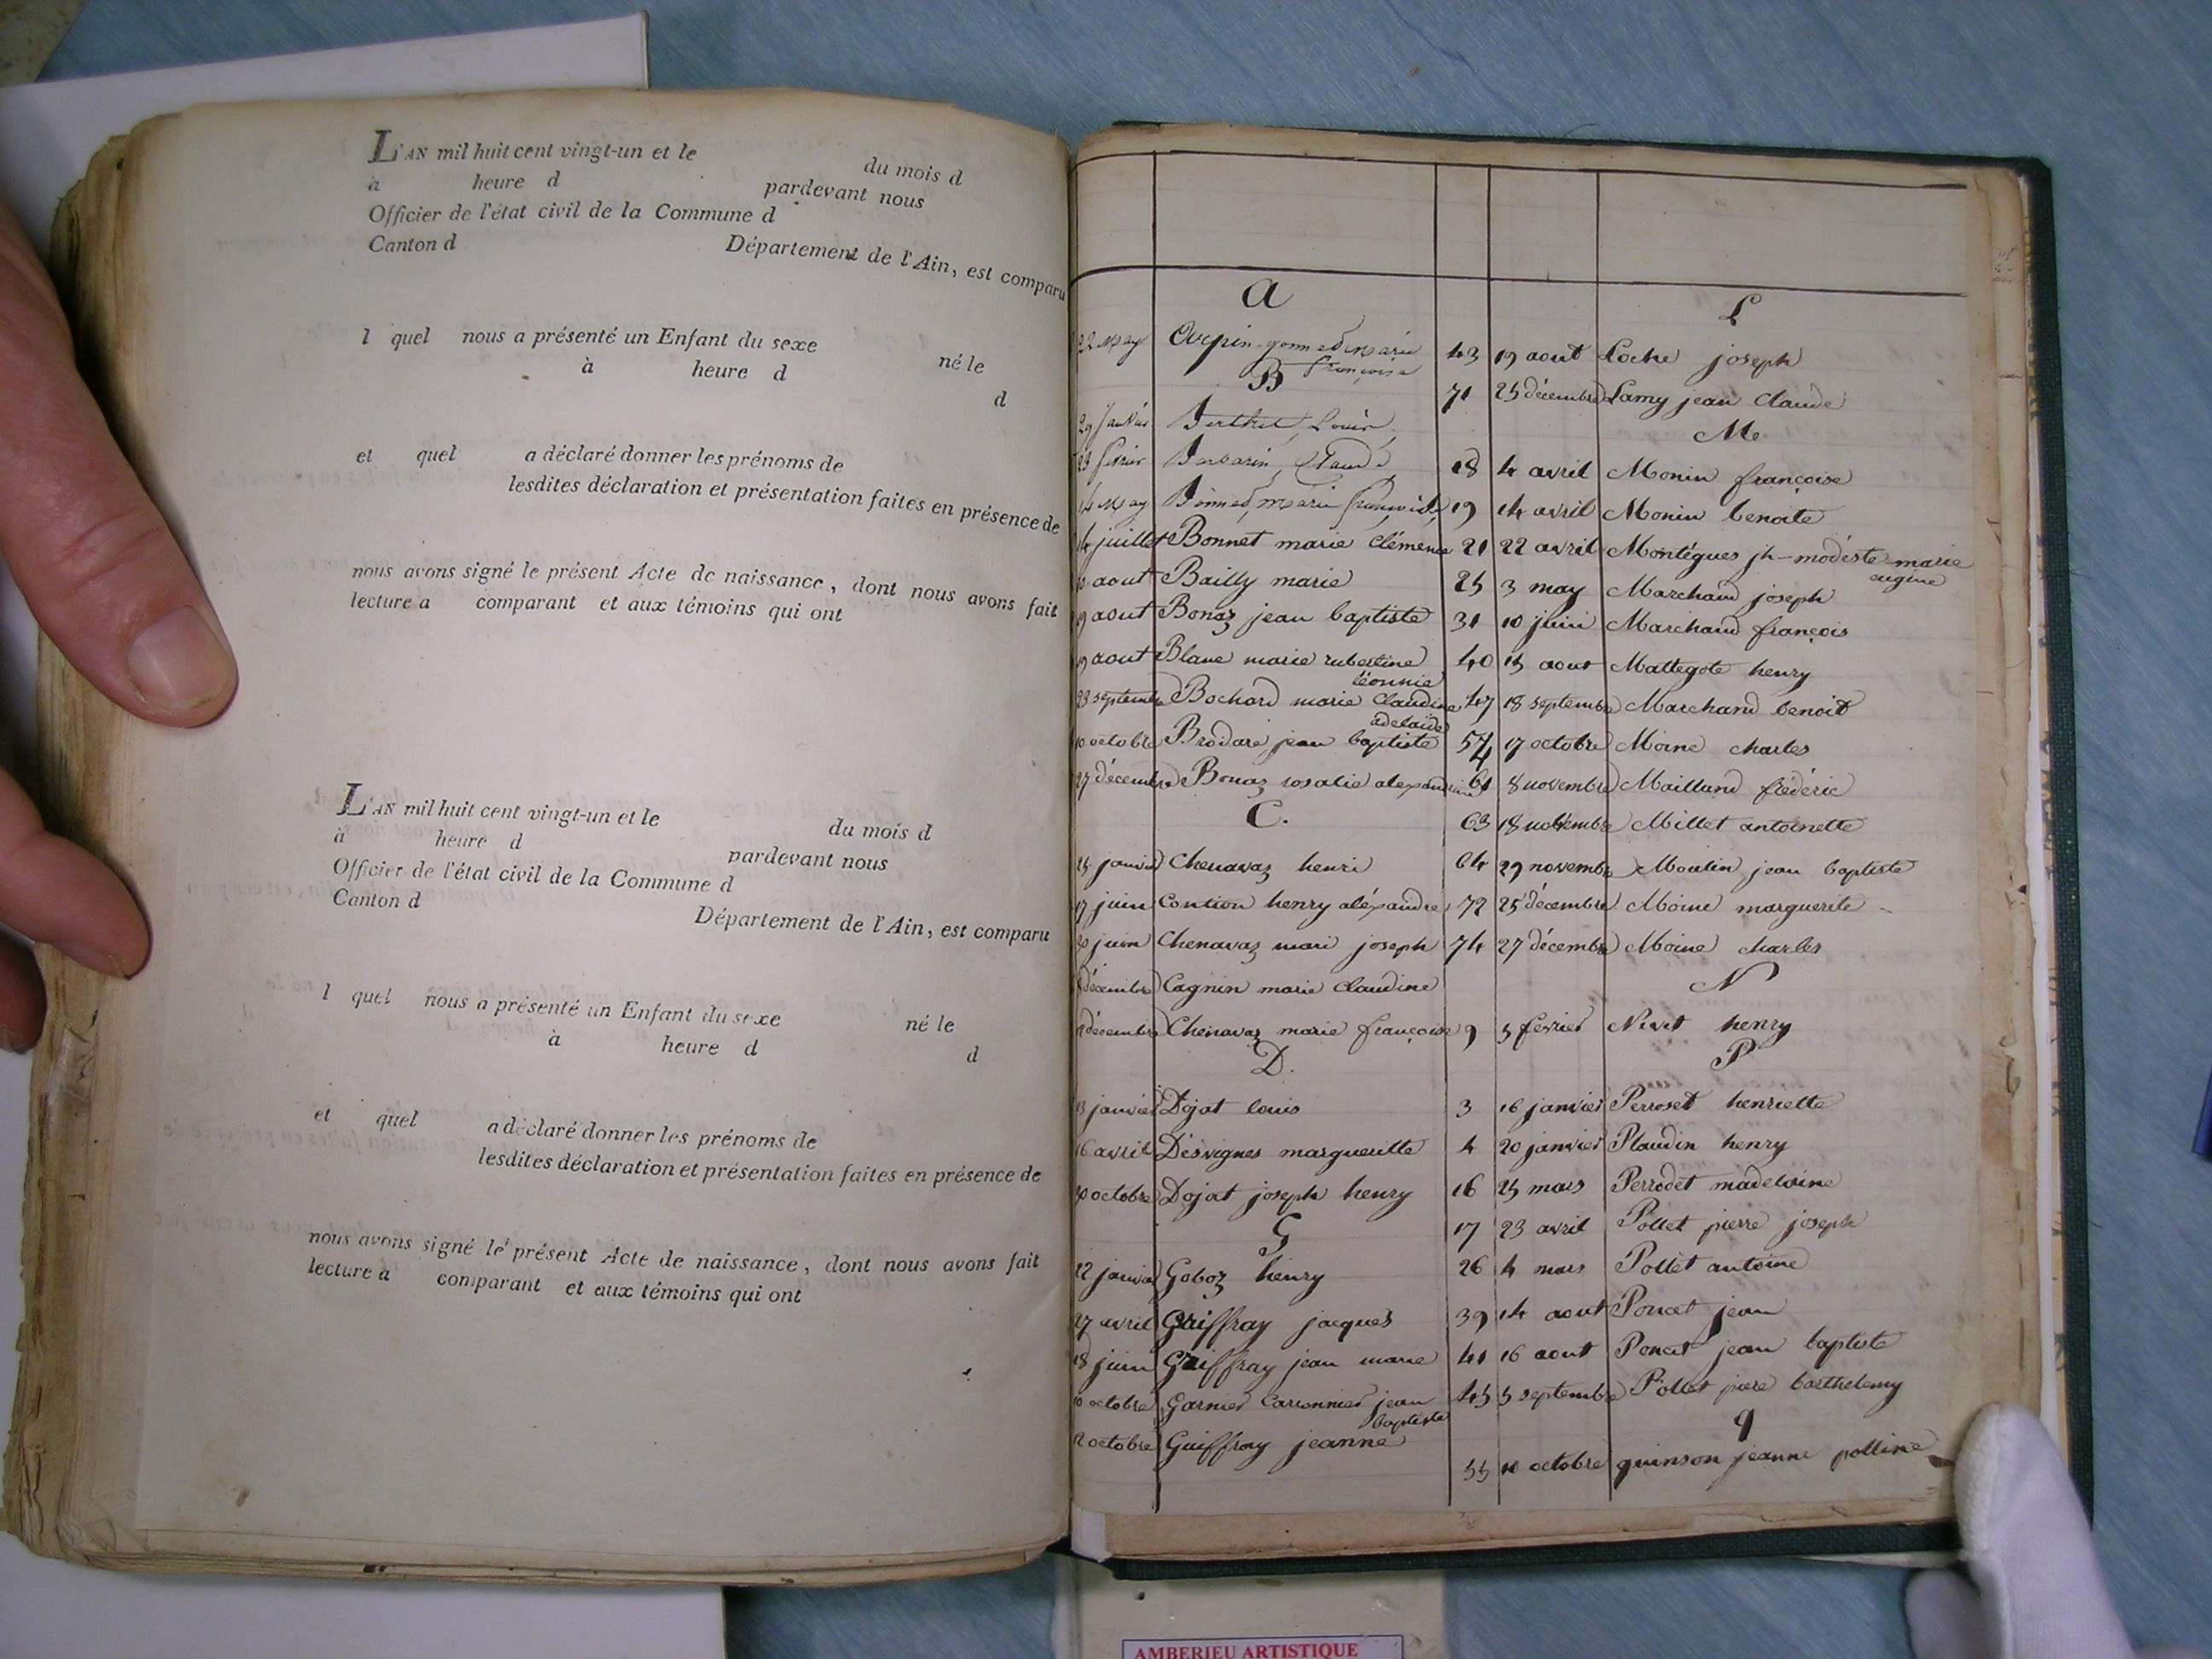 L'AN mil huit cent vingt-un et le du mois d
à heure d pardevant nous
Officier de l'état civil de la Commune d
Canton d Département de l'Ain, est comparu
l quel nous a présenté un Enfant du sexe né le
à heure d d
et quel a déclaré donner les prénoms de
lesdites déclaration et présentation faites en présence de
nous avons signé le présent Acte de naissance, dont nous avons fait
lecture a comparant et aux témoins qui ont
L'AN mil huit cent vingt-un et le du mois d
à heure d pardevant nous
Officier de l'état civil de la Commune d
Canton d Département de l'Ain, est comparu
l quel nous a présenté un Enfant du sexe né le
à heure d d
et quel a déclaré donner les prénoms de
lesdites déclaration et présentation faites en présence de
nous avons signé le présent Acte de naissance, dont nous avons fait
lecture a comparant et aux témoins qui ont
A
22 May
françoise
B
Berthet, Louis
Claude
14 May marie
juillet Bonnet marie clémence
aout Bailly marie
19 aout Bonaz jean baptiste
19 aout Blanc marie
léonnie
23 septembre Bochard marie Claudine
adelaide
10 octobre jean baptiste
27 décembre Bonaz rosalie alexandrine
C.
25 janvier Chenavaz henri
17 juin henry aléxandre
30 juin Chenavaz mari joseph
décembre Cagnin marie Claudine
décembre Chenavaz marie françoise
D.
13 janvier Dojat louis
16 avril Désvignes margueritte
30 octobre Dojat joseph henry
G
22 janvier Goboz henry
27 avril Griffray jacques
18 juin Guiffray jean marie
10 octobre Garnier Carronnier jean
baptiste
12 octobre Guiffray jeanne
L
43 19 aout Loche joseph
71 25 décembre Lamy jean Claude
M
18 4 avril Monin françoise
19 14 avril Monin benoite
21 22 avril Montégues jh-modéste marie
eugine
25 3 may Marchand joseph
31 10 juin Marchand françois
40 15 aout Mattegote henry
47 18 septembre Marchand benoit
57 17 octobre Moine charles
61 8 novembre Mailland frédéric
63 18 novembre Millet antoinette
64 29 novembre Moulin jean baptiste
72 25 décembre Moine marguerite
74 27 décembre Moine charles
N
9 5 fevrier Nivet henry
P
3 16 janvier Perroset henriette
4 20 janvier Plaudin henry
16 25 mars Perrodet madelaine
17 23 avril Pollet pierre joseph
26 4 mars Pollet antoine
39 14 aout Poncet jean
41 16 aout Poncet jean baptiste
45 5 septembre Pollet piere barthelemy
q
55 10 octobre quinson jeanne polline
AMBERIEU ARTISTIQUE